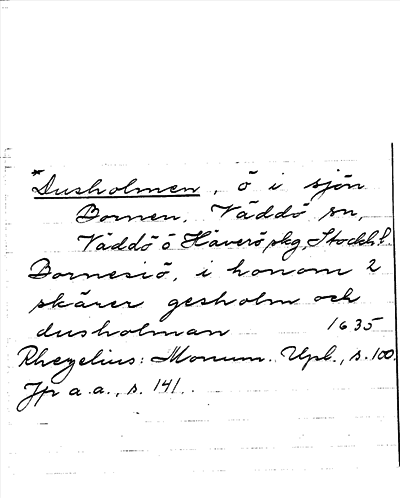 *Dusholmen, ö i sjön
Bornen, Väddö sn,
Väddö o Häverö skg, Stockh.l.
Bornesiö, i honom 2
skärer gesholm och
dusholman 1635
Rhezelius: Monum. Upl., s. 100.
Jfr a.a., s. 141.